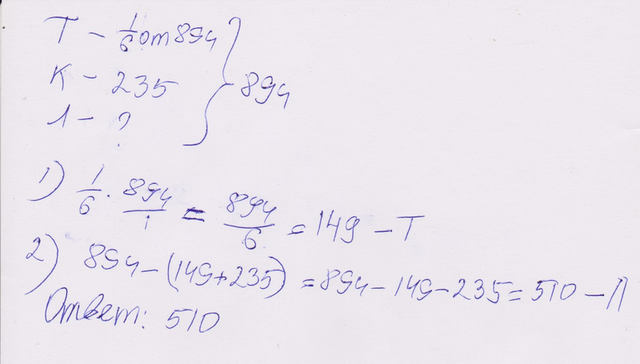 Т - 1/6 от 894
К - 235 } 894
Л - ?
1) 1/6 · 894/1 = 894/6 = 149 - Т
2) 894 - (149 + 235) = 894 - 149 - 235 = 510 - Л
Ответ: 510